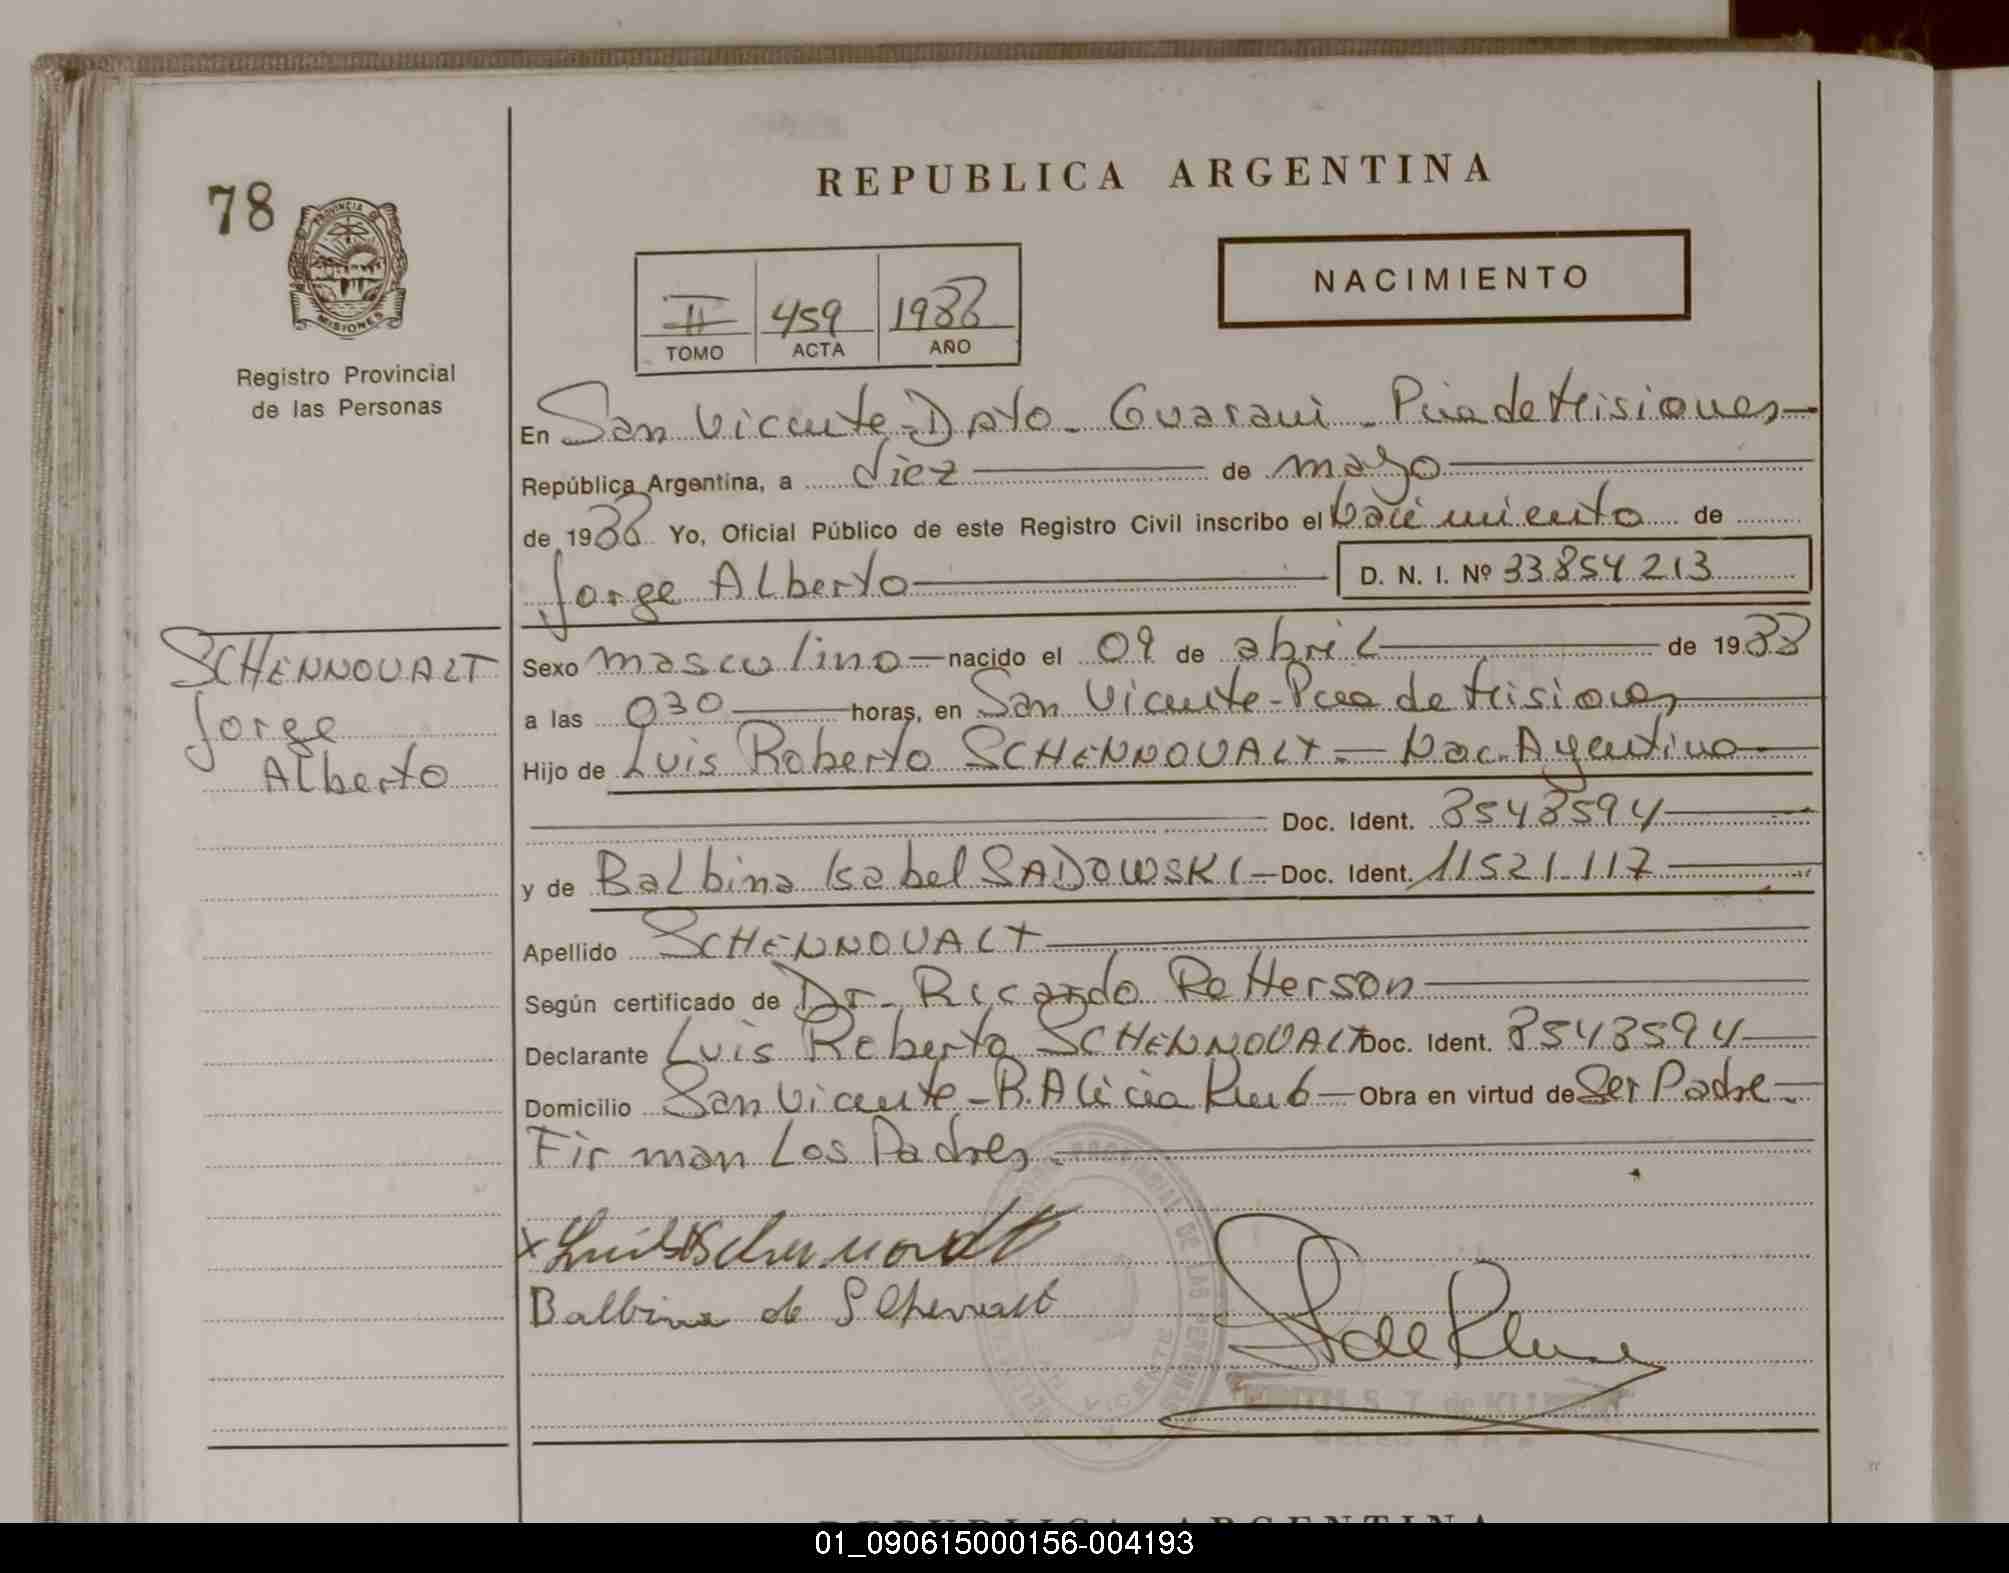 REPUBLICA ARGENTINA
78
PROVINCIA DE
MISIONES
Registro Provincial
de las Personas
NACIMIENTO
II 459 1988
TOMO ACTA AÑO
En San Vicente - Dpto - Guaraní - Pcia de Misiones
República Argentina, a diez de mayo
de 1988 Yo, Oficial Público de este Registro Civil inscribo el Nacimiento de
Jorge Alberto D. N. I. Nº 33.854.213
SCHENNOVALT
Jorge
Alberto
Sexo masculino nacido el 09 de abril de 1988
a las 030 horas, en San Vicente - Pcia de Misiones
Hijo de Luis Roberto SCHENNOVALT - Nac. Argentino
Doc. Ident. 8548594
y de Balbina Isabel SADOWSKI - Doc. Ident. 11521.117
Apellido SCHENNOVALT
Según certificado de Dr. Ricardo
Declarante Luis Roberto SCHENNOVALT Doc. Ident. 8548594
Domicilio San Vicente - B. Alicia Km 6 - Obra en virtud de Ser Padre -
Firman Los Padres.
Balbina de
01_090615000156-004193